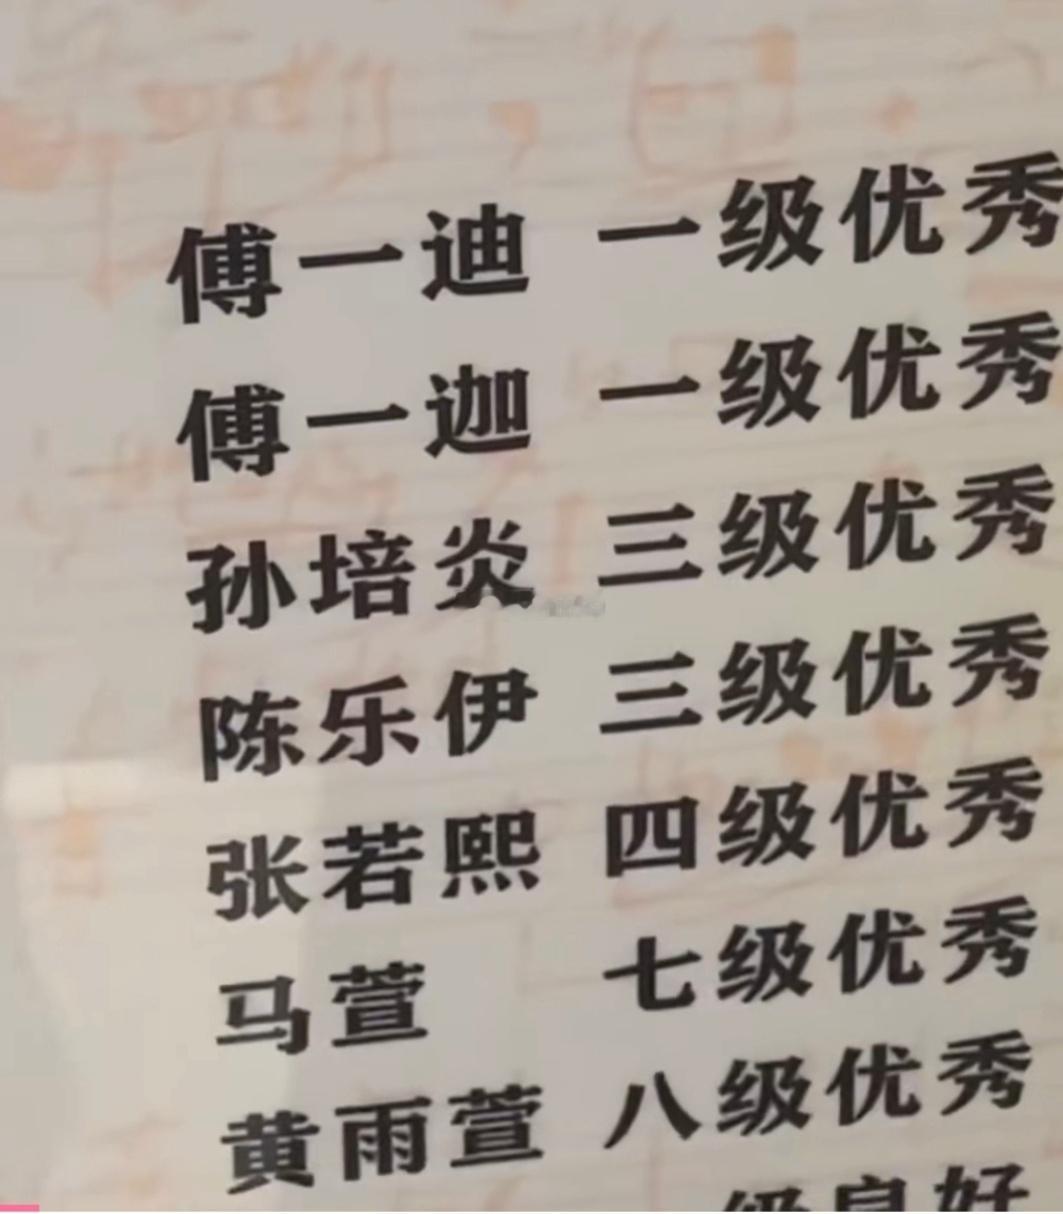 傅一迪 一级优秀
傅一迦 一级优秀
孙培炎 三级优秀
陈乐伊 三级优秀
张若熙 四级优秀
马萱 七级优秀
黄雨萱 八级优秀
级良好